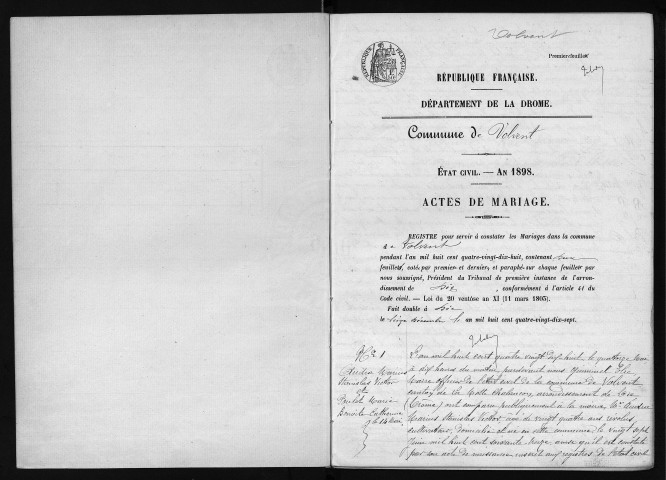 Volvent
Premier feuillet
RÉPUBLIQUE FRANÇAISE
RÉPUBLIQUE FRANÇAISE.
DÉPARTEMENT DE LA DROME.
Commune de Volvent
ÉTAT CIVIL. — AN 1898.
ACTES DE MARIAGE.
REGISTRE pour servir à constater les Mariages dans la commune
de Volvent
pendant l'an mil huit cent quatre-vingt-dix-huit, contenant
feuillets, coté par premier et dernier, et paraphé sur chaque feuillet par
nous soussigné, Président du Tribunal de première instance de l'arron-
dissement de Die, conformément à l'article 41 du
Code civil. — Loi du 20 ventôse an XI (11 mars 1803).
Fait double à Die
le seize décembre an mil huit cent quatre-vingt-dix-sept.
No 1
Marius
Stanislas Victor
et
Maria
Catherine
le 14 Mai
L'an mil huit cent quatre vingt dix huit le quatorze Mai
à dix heures du matin, pardevant nous
Maire officier de l'état civil de la commune de Volvent
canton de La Motte Chalancon arrondissement de Die
(Drôme) ont comparu publiquement à la mairie
Marius Stanislas Victor âgé de vingt quatre ans révolus
cultivateur, domicilié et né en cette commune le vingt sept
Juin mil huit cent soixante treize, ainsi qu'il est constaté
par son acte de naissance inscrit aux registres de l'état civil